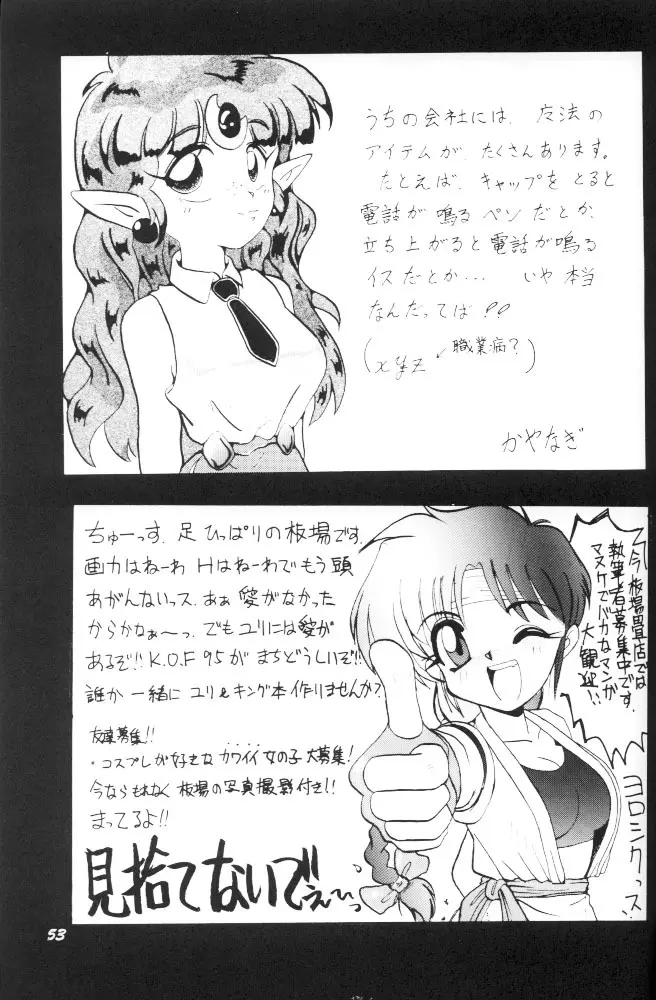 うちの会社には、魔法の
アイテムが、たくさんあります。
たとえば、キャップをとると
電話が鳴るペンだとか、
立ち上がると電話が鳴る
イスだーとか… いや本当
なんだってば!!
(xyz ←職業病?)
かやなぎ
ちゅーっす、足ひっぱりの板場です。
画力はねーわHはねーわでもう頭
あがんないっス。あぁ愛がなかった
からかなぁ〜っ。でもユリには愛が
あるぞ!! K.O.F 95が まちどうしいぞ!!
誰か 一緒に ユリ&キング本作りませんか?
友達募集!!
・コスプレが好きなカワイイ女の子大募集!
今ならもれなく 板場の写真撮影付き!!
まってるよ!!
見捨てないでぇ〜っ
今、板場畳店では
執筆者募集中です。
マヌケでバカなマンガ
大観迎!!
ヨロシクっス!!
53